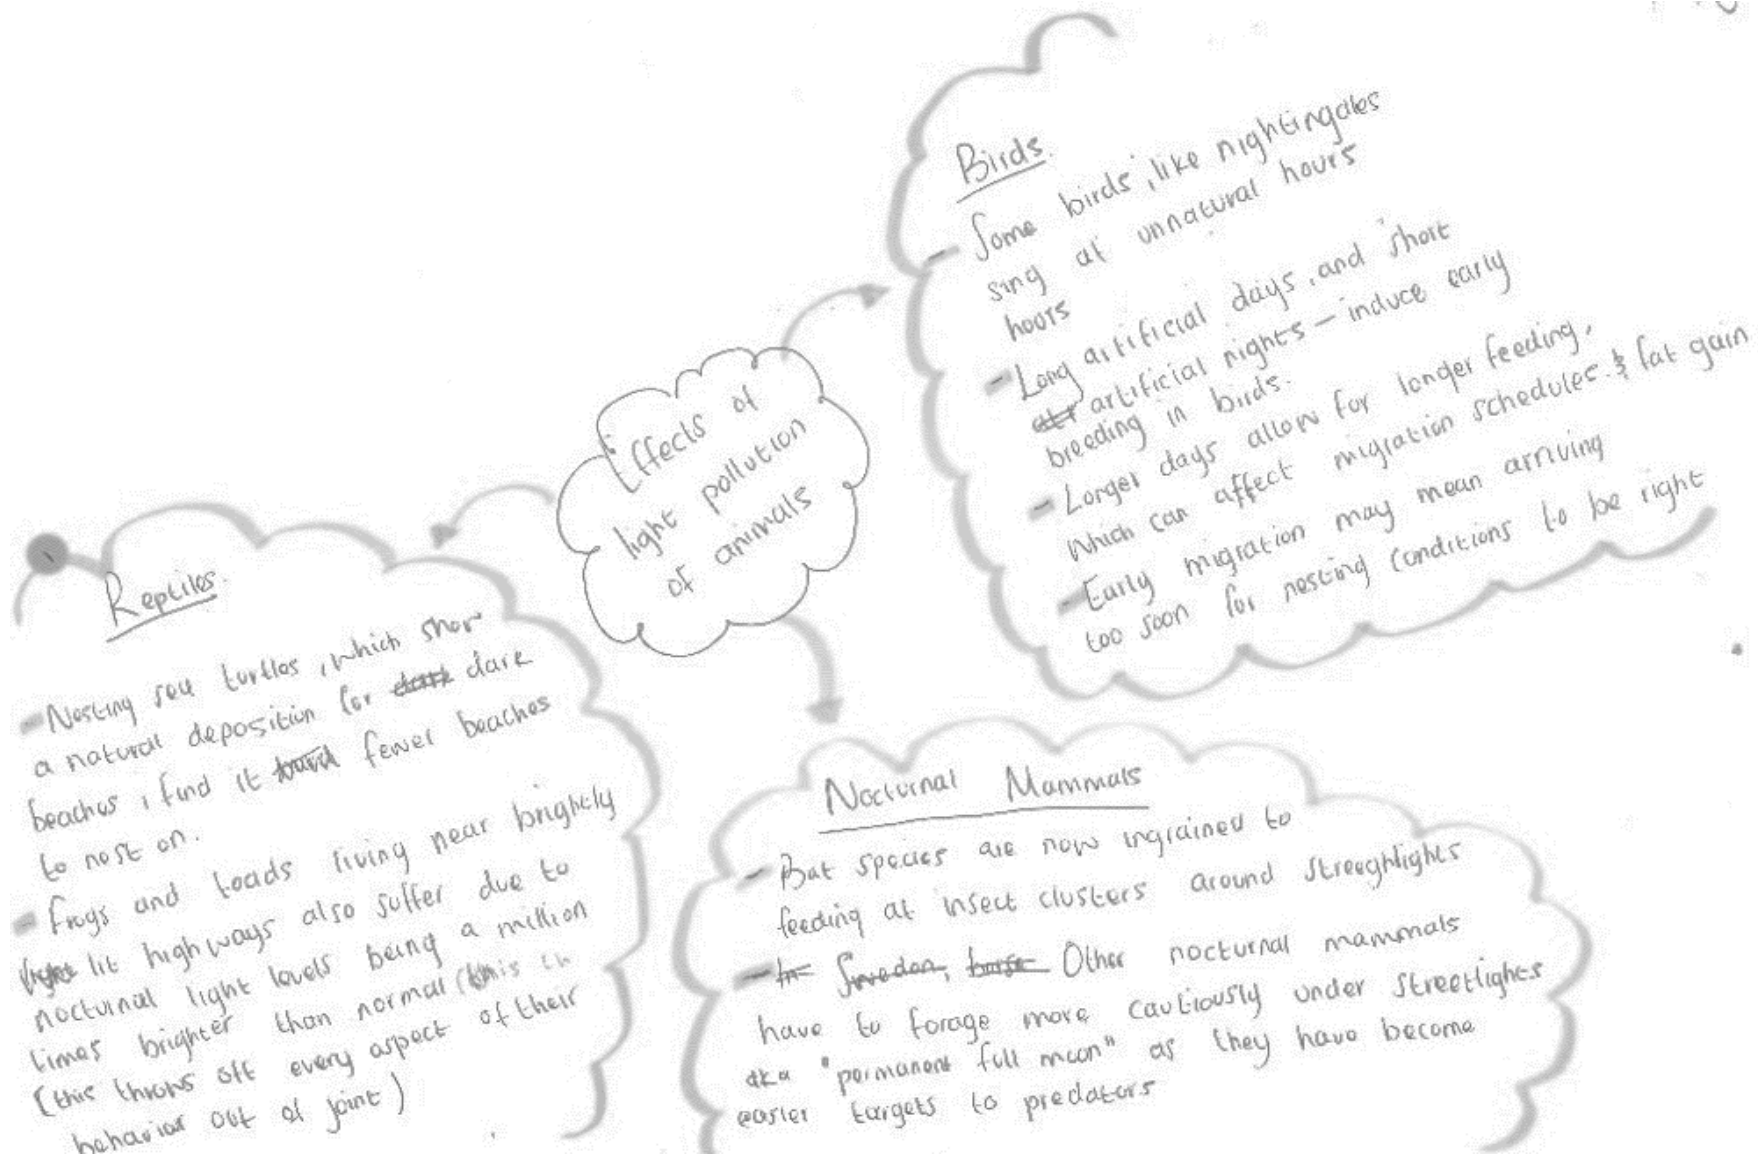 Effects of
light pollution
of animals
Birds.
- Some birds, like nightingales
sing at unnatural hours
hours
- Long artificial days, and short
artificial nights - induce early
breeding in birds.
- Longer days allow for longer feeding,
which can affect migration schedules. & fat gain
- Early migration may mean arriving
too soon for nesting conditions to be right
Reptiles.
- Nesting sea turtles, which show
a natural deposition for dark dark
beaches, find it fewer beaches
to nest on.
- Frogs and toads living near brightly
light lit highways also suffer due to
nocturnal light levels being a million
times brighter than normal (this th
(this throws off every aspect of their
behavior out of joint)
Nocturnal Mammals
- Bat species are now ingrained to
feeding at insect clusters around streeghtlights
- In Sweden, Other nocturnal mammals
have to forage more cautiously under streetlights
aka "permanent full moon" as they have become
easier targets to predators